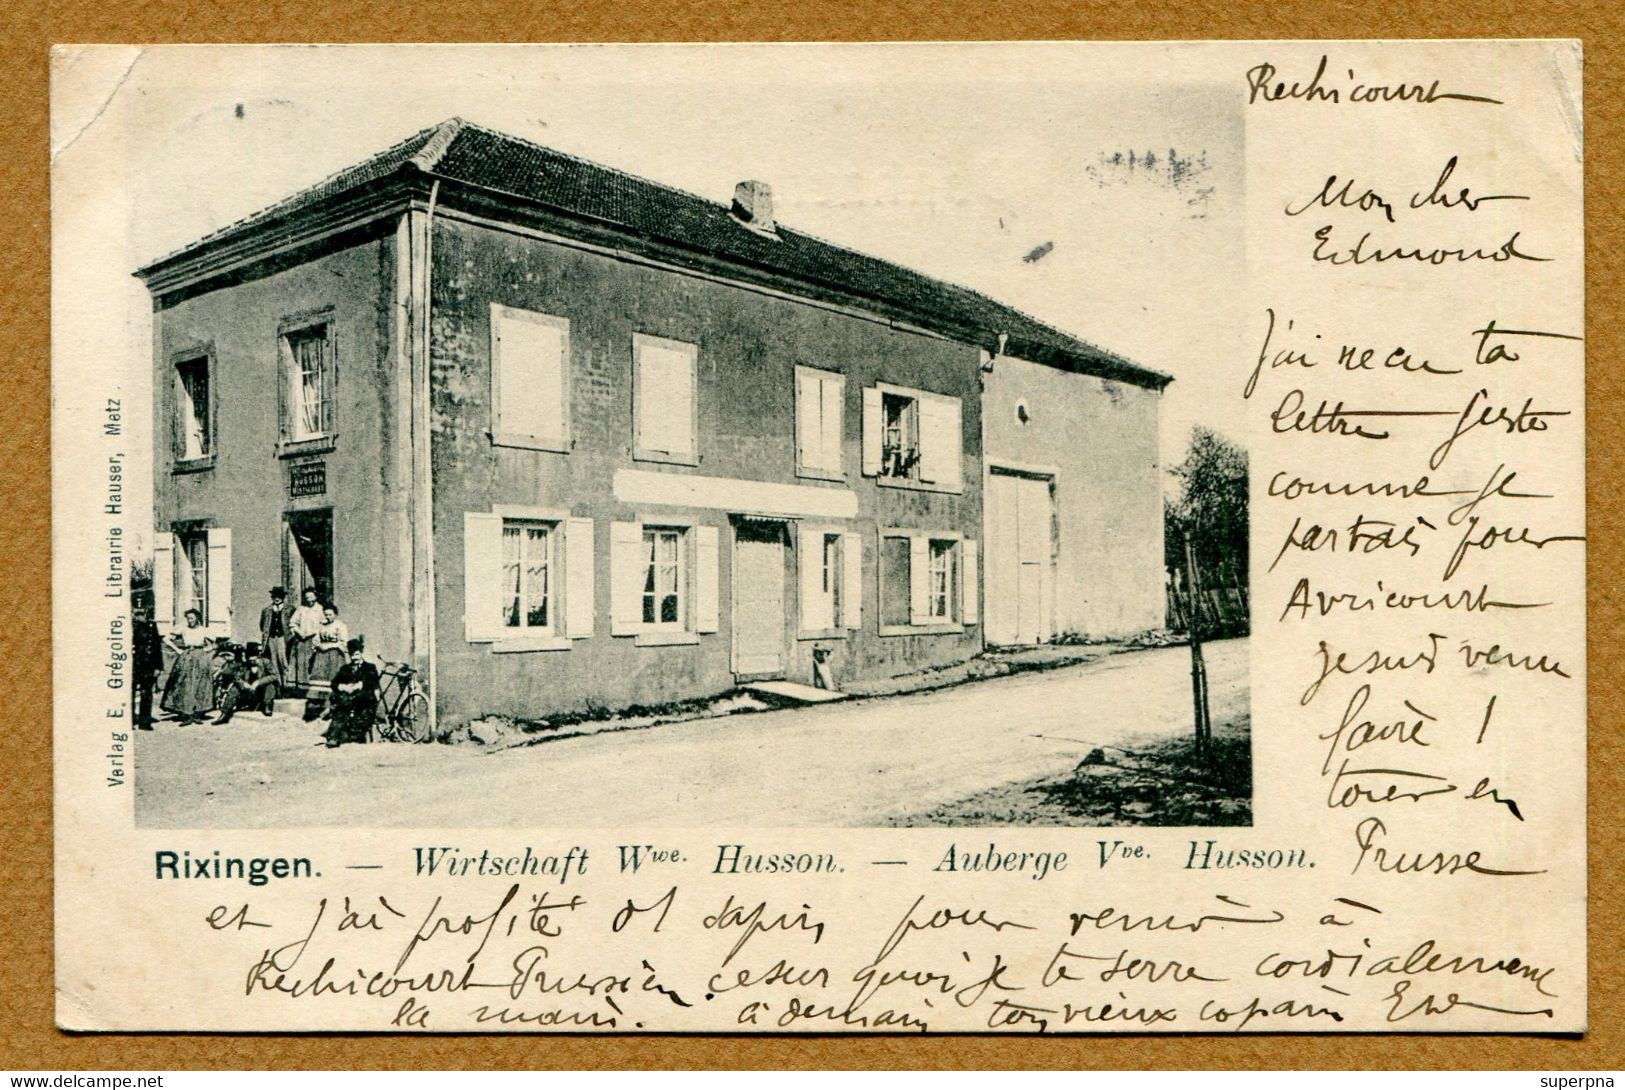 Rechicourt
Mon cher
Edmond
J'ai recu ta
lettre juste
comme je
partais pour
Avricourt
je suis venu
faire 1
tour en
Prusse
et j'ai profité pour venir à
Rechicourt Prussien ce sur quoi je te serre cordialement
la main. à demain ton vieux copain
HUSSON
WIRTSCHAFT
Verlag E. Grégoire, Librairie Hauser, Metz.
Rixingen. — Wirtschaft Wwe. Husson. — Auberge Vve. Husson.
delcampe.net
superpna